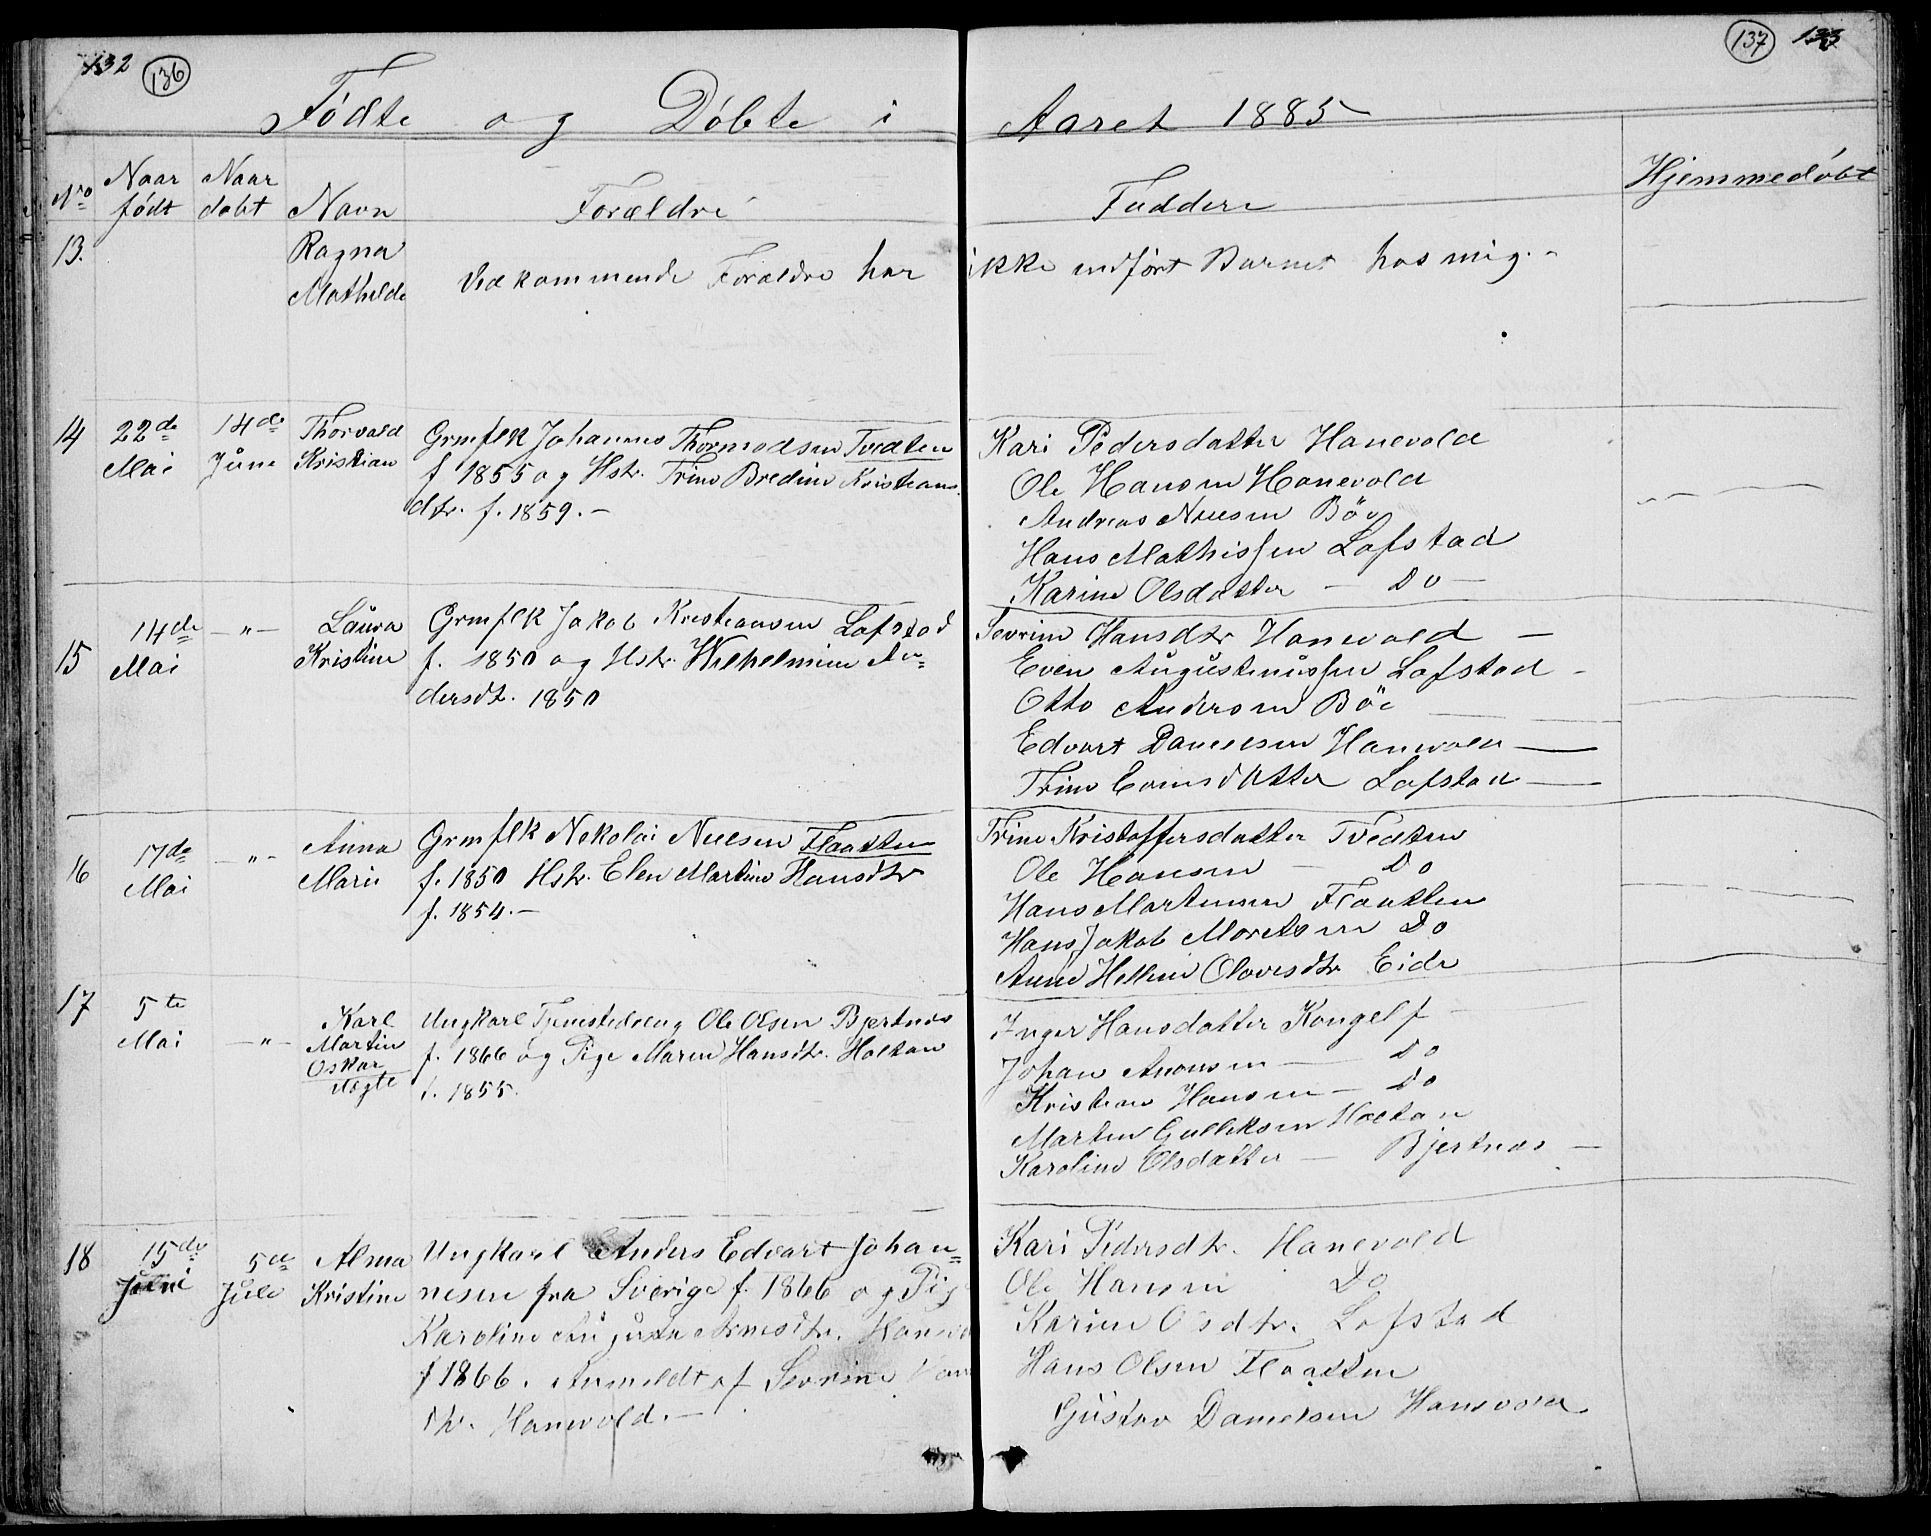 132 (136)
Fødte og Døbte i
No
Naar født
Naar døbt
Navn
Forældre
13.
Ragna
Mathilde
Vedkommende Forældre har
14
22de
Mai
14de
June
Thorvald
Kristian
Grmflk Johannes Thormodsen Tvedten
f 1855 og Hstr. Trine Bredine Kristians
dtr. f. 1859. —
15
14de
Mai
— " —
Laura
Kristine
Grmflk Jakob Kristiansen Lofstad
f. 1850 og Hstr. Wilhelmine An=
dersdt. 1850
16
17de
Mai
— " —
Anna
Marie
Grmflk Nekolai Nielsen Flaatten
f. 1850 Hstr. Elen Martine Hansdtr
f. 1854. —
17
5te
Mai
— " —
Karl
Martin
Oskar
Uægte
Ungkarl Ole Olsen Bjertnæs
f. 1866 og Pige Maren Hansdtr. Holtan
f. 1855.
18
15de
Juni
5de
Juli
Alma
Kristine
Ungkarl Anders Edvart Johan=
nesen fra Sverige f. 1866 og Pig
Karoline Augusta Arnesdtr.
f 1866. Anmeldt af Sevrine
dtr. Hanevold. —
(137) 133
Aaret 1885
Faddere
Hjemmedøbt
ikke indført Barnet hos mig. —
Kari Pedersdatter Hanevold
Ole Hansen Hanevold
Andreas Nielsen Böe
Hans Mathissen Lofstad
Karine Olsdatter — Do —
Sevrine Hansdtr Hanevold —
Even Augustinussen Lofstad -
Otto Andersen Böe
Edvart Danielsen Hanevold —
Trine Evensdatter Lofstad —
Trine Kristoffersdatter Tvedten
Ole Hansen — Do
Hans Martinsen Flaatten
Hans Jakob Moretsen Do
Anne Helline Olavesdtr Eide
Inger Hansdatter Kongelf —
Johan Aronsen — Do
Kristian Hansen — Do
Martin Gulliksen Holtan
Karoline Olsdatter — Bjertnæs —
Kari Pedersdtr. Hanevold
Ole Hansen Do
Karine Olsdtr. Lofstad
Hans Olsen Flaatten
Gustav Danielsen Hanevold